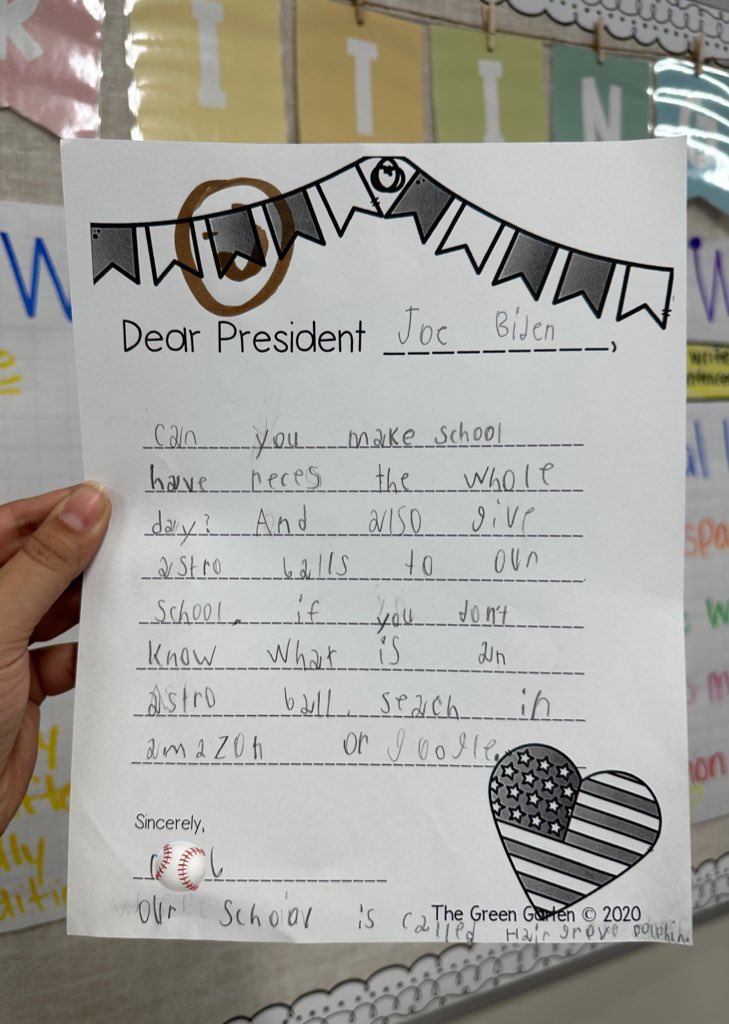 R I T I N G
W
W
Dear President Joe Biden,
can you make school
have reces the whole
day? And also give
astro balls to our
school. if you don't
know what is an
astro ball. seach in
amazon or google.
Sincerely,
our scholor is called Hair grove Dolphin
The Green Garten © 2020